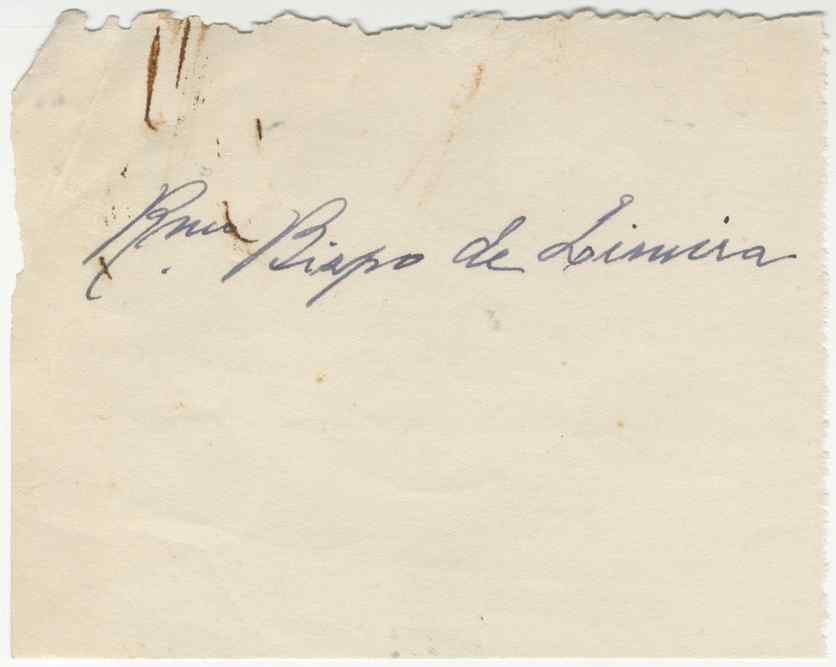 Rmo. Bispo de Limeira